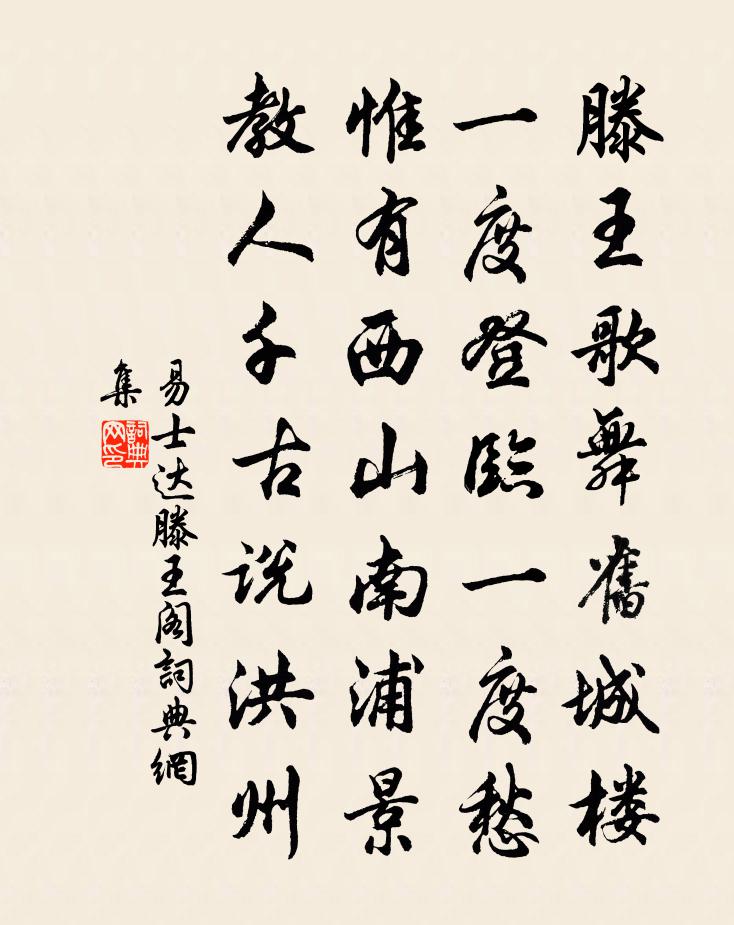 滕王歌舞舊城楼
一度登臨一度愁
惟有西山南浦景
教人千古说洪州
易士达滕王阁詞典網
集
詞典网印